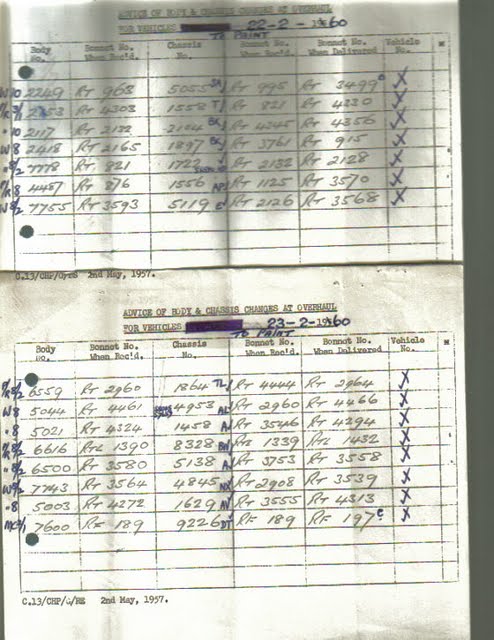 ADVICE OF BODY & CHASSIS CHANGES AT OVERHAUL
FOR VEHICLES 22-2-1960
TO PAINT
Body No. Bonnet No. When Rec'd. Chassis No. Bonnet No. When Rec'd. Bonnet No. When Delivered Vehicle No.
W10 2249 RT 963 5055 RT 995 RT 3499 X
RT 4303 1558 RT 821 RT 4330 X
"10 2117 RT 2132 2104 BK RT 4345 RT 4356 X
W8 2418 RT 2165 1897 BK RT 3761 RT 915 X
"8/2 7778 RT 821 1722 RT 2132 RT 2128 X
4487 RT 876 1556 RT 1125 RT 3570 X
W8/2 7755 RT 3593 5119 RT 2126 RT 3568 X
C.13/CHP/ 2nd May, 1957.
ADVICE OF BODY & CHASSIS CHANGES AT OVERHAUL
FOR VEHICLES 23-2-1960
TO PAINT
Body No. Bonnet No. When Rec'd. Chassis No. Bonnet No. When Rec'd. Bonnet No. When Delivered Vehicle No.
6559 RT 2960 1864 TL RT 4444 RT 2964 X
W8 5044 RT 4461 4953 AL RT 2960 RT 4466 X
"8 5021 RT 4324 1458 A RT 3546 RT 4294 X
6616 RTL 1390 8328 BW RTL 1339 RTL 1432 X
"8/2 6500 RT 3580 5138 A RT 3753 RT 3558 X
W9/2 7743 RT 3564 4845 NX RT 2908 RT 3539 X
"8 5003 RT 4272 1629 AV RT 3555 RT 4313 X
7600 RF 189 9226 DT RF 189 RF 197 c X
C.13/CHP/G/RE 2nd May, 1957.